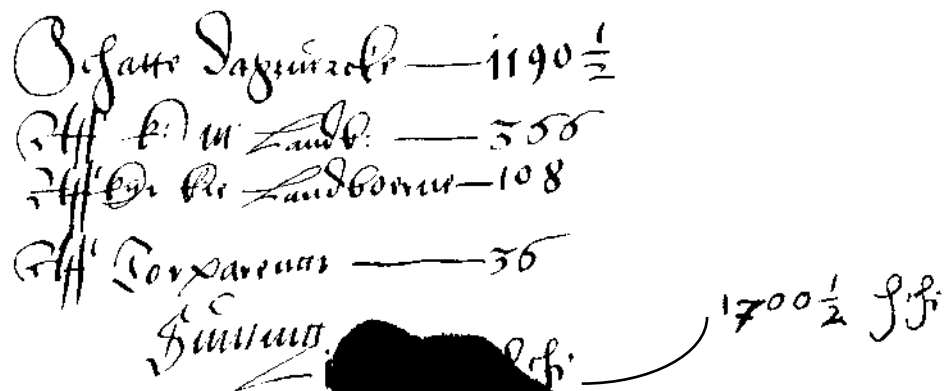 Schatte Dagzuercke — 1190 1/2
Aff k: M: Landb: — 366
Aff kyrkie Landboerne — 108
Aff Torparenar — 36
Summa
1700 1/2